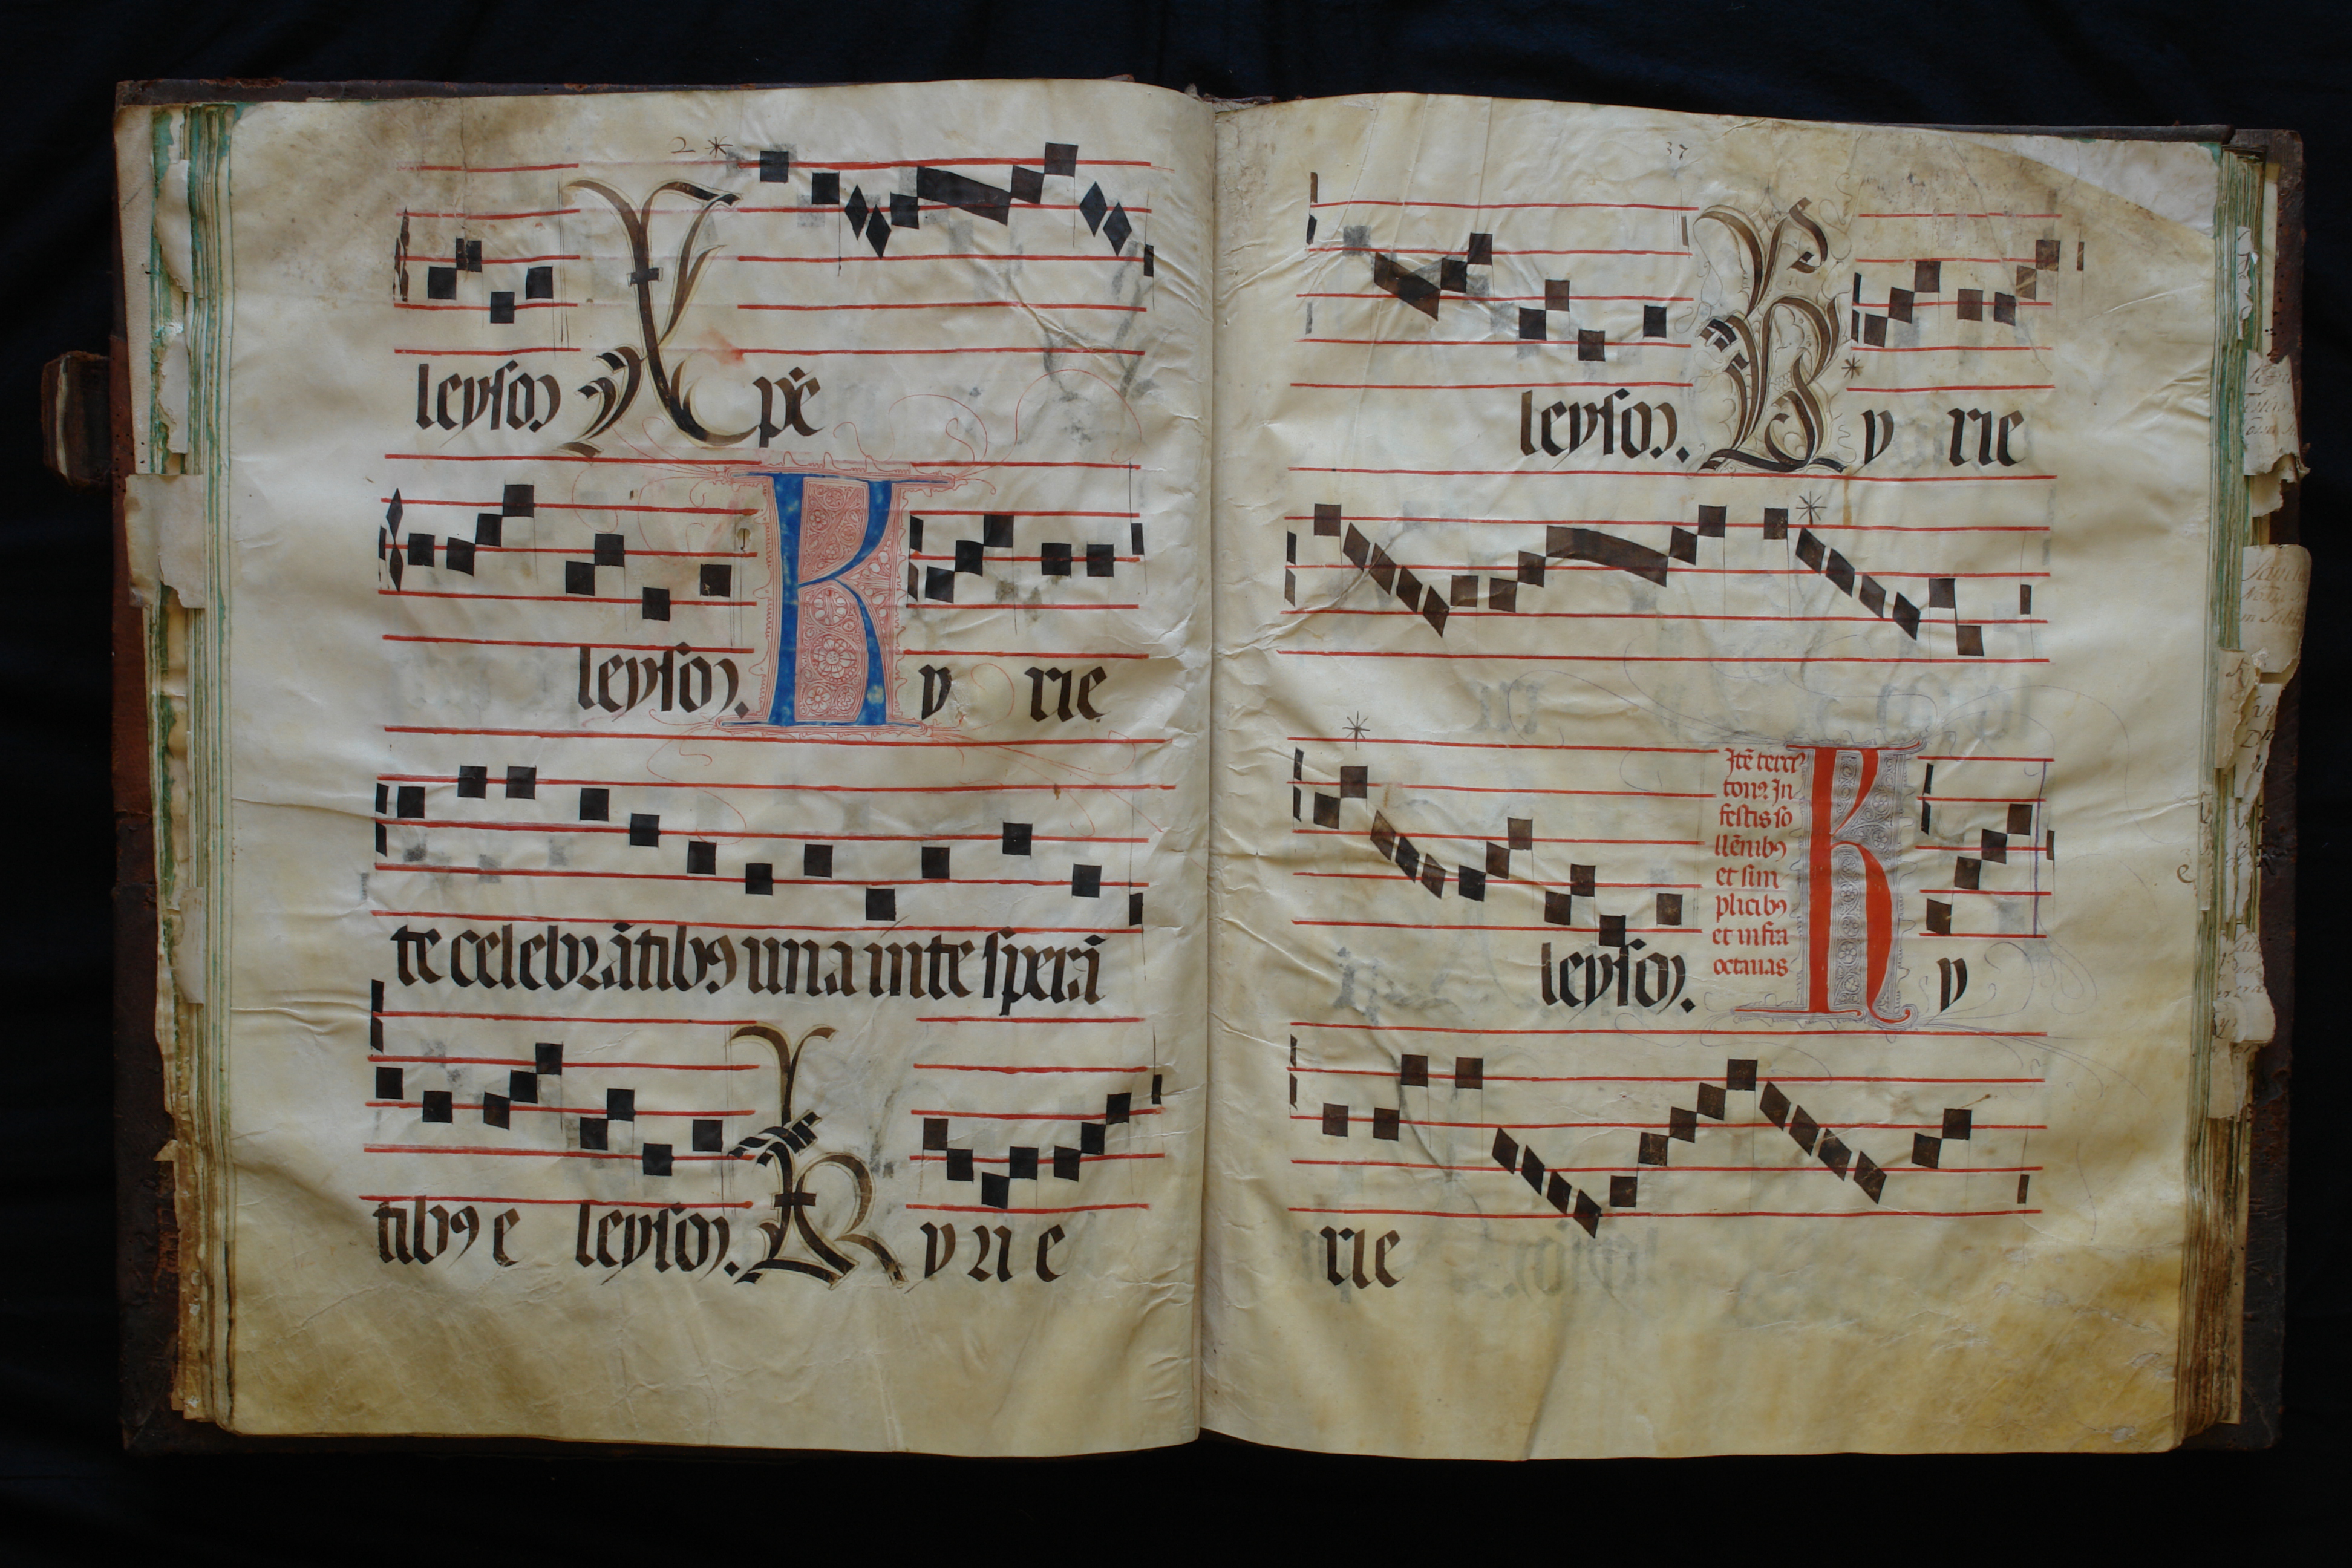 2 *
leyson Xpē
leyson. Ky rie
te celebrātibꝰ una in te sperā
tibꝰ e leyson. Kyrie
37
leyson. Ky rie
Itē terciꝰ
tonꝰ In
festis so
llēnibꝰ
et sim
plicibꝰ
et infra
octauas
leyson. Ky
e
rie